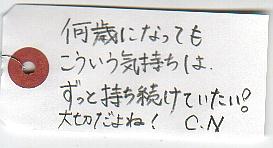 何歳になっても
こういう気持ちは、
ずっと持ち続けていたい!
大切だよね! C.N